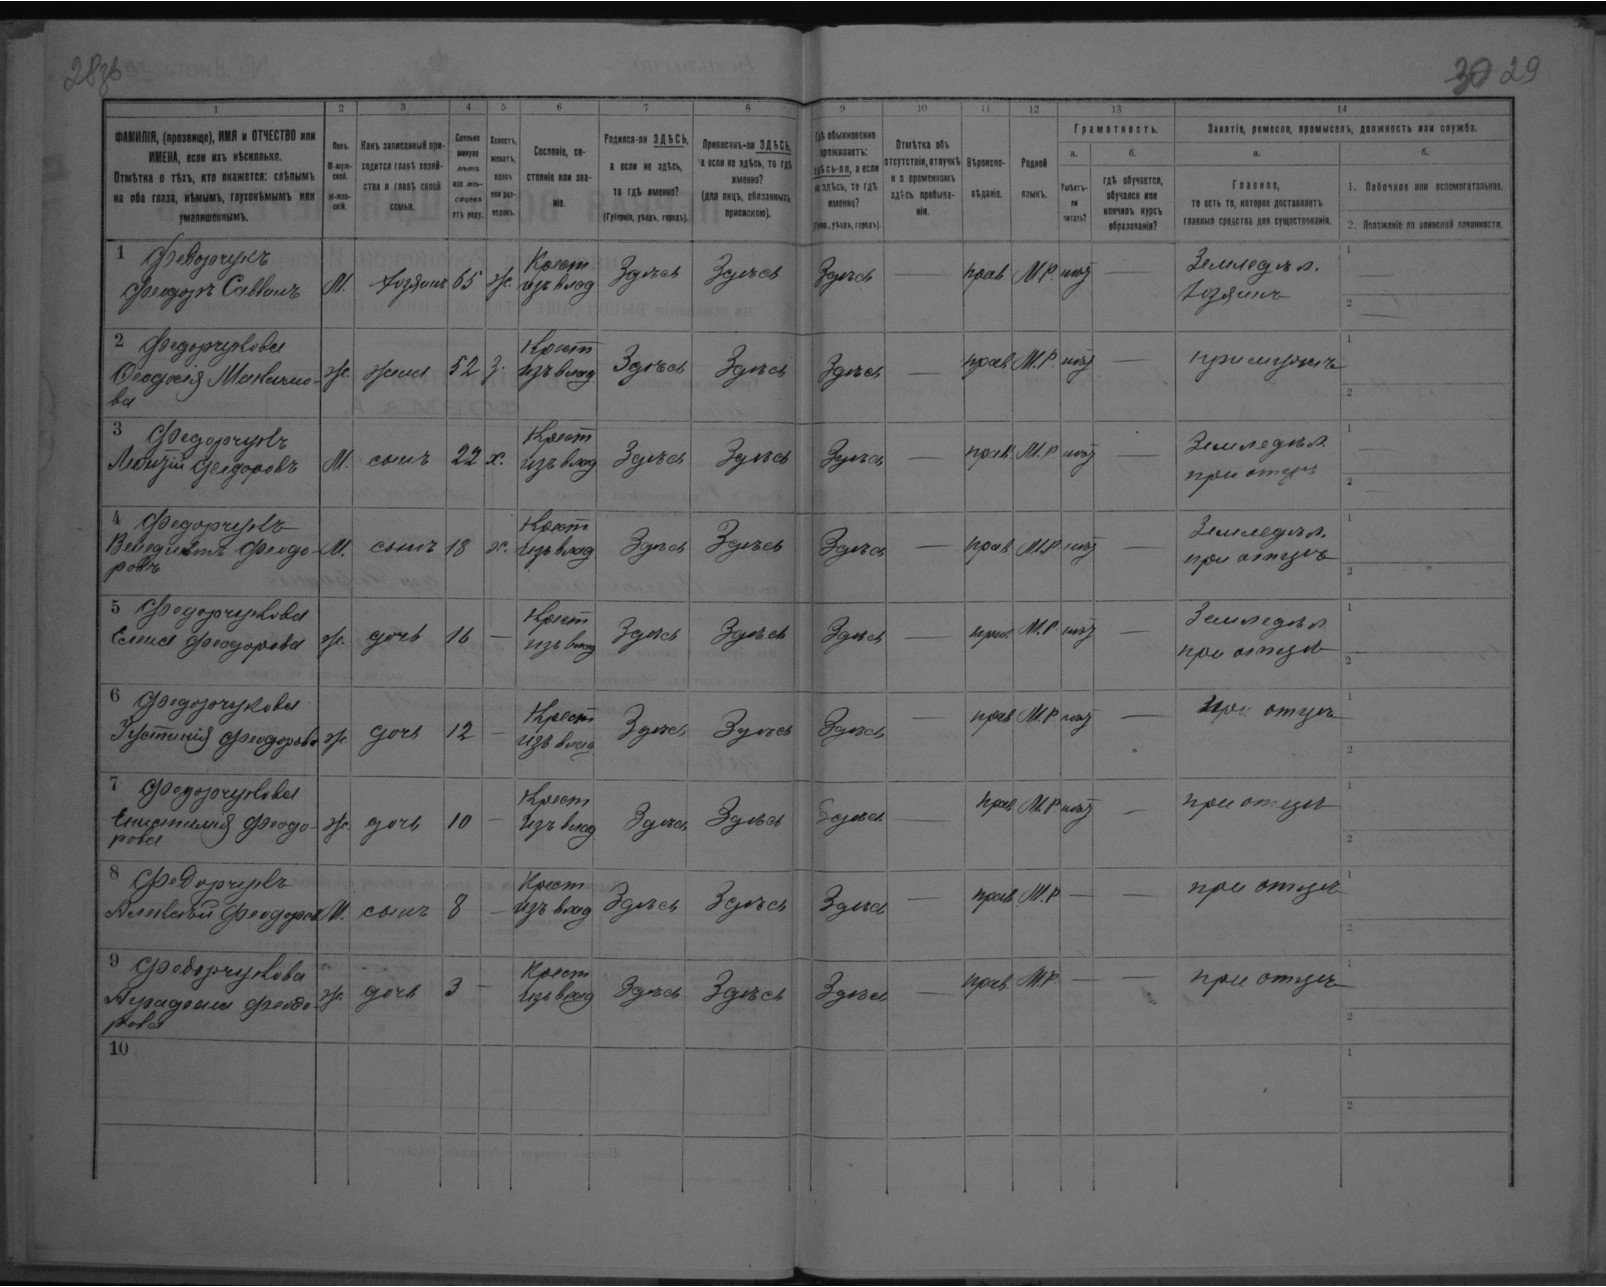 28об
30 29
1 2 3 4 5 6 7 8 9 10 11 12 13 14
ФАМИЛІЯ, (прозвище), ИМЯ и ОТЧЕСТВО или ИМЕНА, если ихъ нѣсколько.
Отмѣтка о тѣхъ, кто окажется: слѣпымъ на оба глаза, нѣмымъ, глухонѣмымъ или умалишеннымъ.
Полъ.
М-муж-скій.
Ж-жен-скій.
Какъ записанный при-ходится главѣ хозяй-ства и главѣ своей семьи.
Сколько минуло лѣтъ или мѣ-сяцевъ отъ роду.
Холостъ, женатъ, вдовъ или раз-веденъ.
Сословіе, со-стояніе или зва-ніе.
Родился-ли ЗДѢСЬ, а если не здѣсь, то гдѣ именно?
(Губернія, уѣздъ, городъ).
Приписанъ-ли ЗДѢСЬ, а если не здѣсь, то гдѣ именно?
(для лицъ, обязанныхъ припискою).
Гдѣ обыкновенно проживаетъ: здѣсь-ли, а если не здѣсь, то гдѣ именно?
(Губ., уѣздъ, городъ).
Отмѣтка объ отсутствіи, отлучкѣ и о временномъ здѣсь пребыва-ніи.
Вѣроиспо-вѣданіе.
Родной языкъ.
Грамотность.
а.
Умѣетъ-ли читать?
б.
гдѣ обучается, обучался или кончилъ курсъ образованія?
Занятіе, ремесло, промыселъ, должность или служба.
а.
Главное, то есть то, которое доставляетъ главныя средства для существованія.
б.
1. Побочное или вспомогательное.
2. Положеніе по воинской повинности.
1 Федорчукъ
Феодоръ Саввинъ М. хозяинъ 65 ж. Крест изъ влад Здѣсь Здѣсь Здѣсь — прав М.Р. нѣтъ — Земледѣл. хозяинъ
2 Федорчукова
Феодосія Макимо-ва ж. жена 52 з. Крест изъ влад Здѣсь Здѣсь Здѣсь — прав М.Р. нѣтъ — при мужѣ
3 Федорчукъ
Феодоровъ М. сынъ 22 х. Крест изъ влад Здѣсь Здѣсь Здѣсь — прав М.Р. нѣтъ — Земледѣл при отцѣ
4 Федорчукъ
Венедиктъ Феодо-ровъ М. сынъ 18 х. Крест изъ влад Здѣсь Здѣсь Здѣсь — прав М.Р. нѣтъ — Земледѣл. при отцѣ
5 Федорчукова
Елена Феодорова ж. дочь 16 — Крест изъ влад Здѣсь Здѣсь Здѣсь — прав М.Р. нѣтъ — Земледѣл при отцѣ
6 Федорчукова
Устинія Феодорова ж. дочь 12 — Крест изъ влад Здѣсь Здѣсь Здѣсь — прав М.Р. нѣтъ — при отцѣ
7 Федорчукова
Епистимія Феодо-рова ж. дочь 10 — Крест изъ влад Здѣсь Здѣсь Здѣсь — прав М.Р. нѣтъ — при отцѣ
8 Федорчукъ
Алексѣй Феодоров М. сынъ 8 — Крест изъ влад Здѣсь Здѣсь Здѣсь — прав М.Р — — при отцѣ
9 Федорчукова
Феодо-рова ж. дочь 3 — Крест изъ влад Здѣсь Здѣсь Здѣсь — прав М.Р — — при отцѣ
10